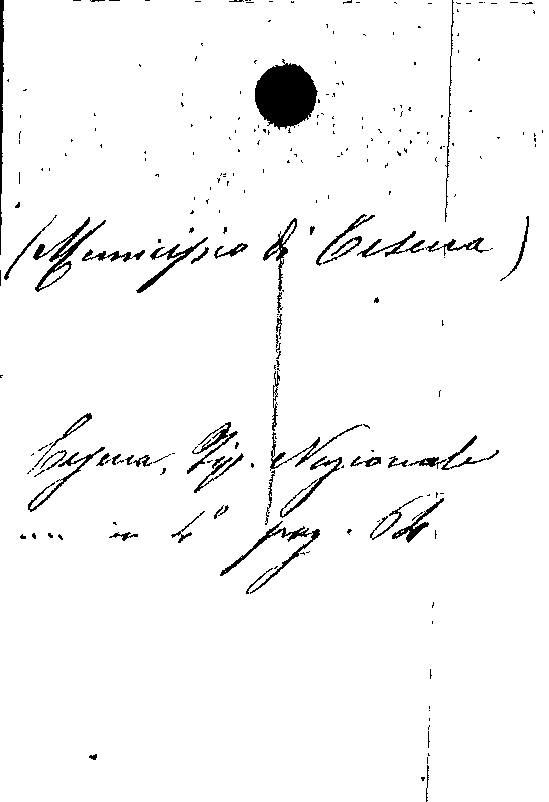 (Municipio di Cesena)
Cesena, Tip. Nazionale
.... in 4° pag. 64